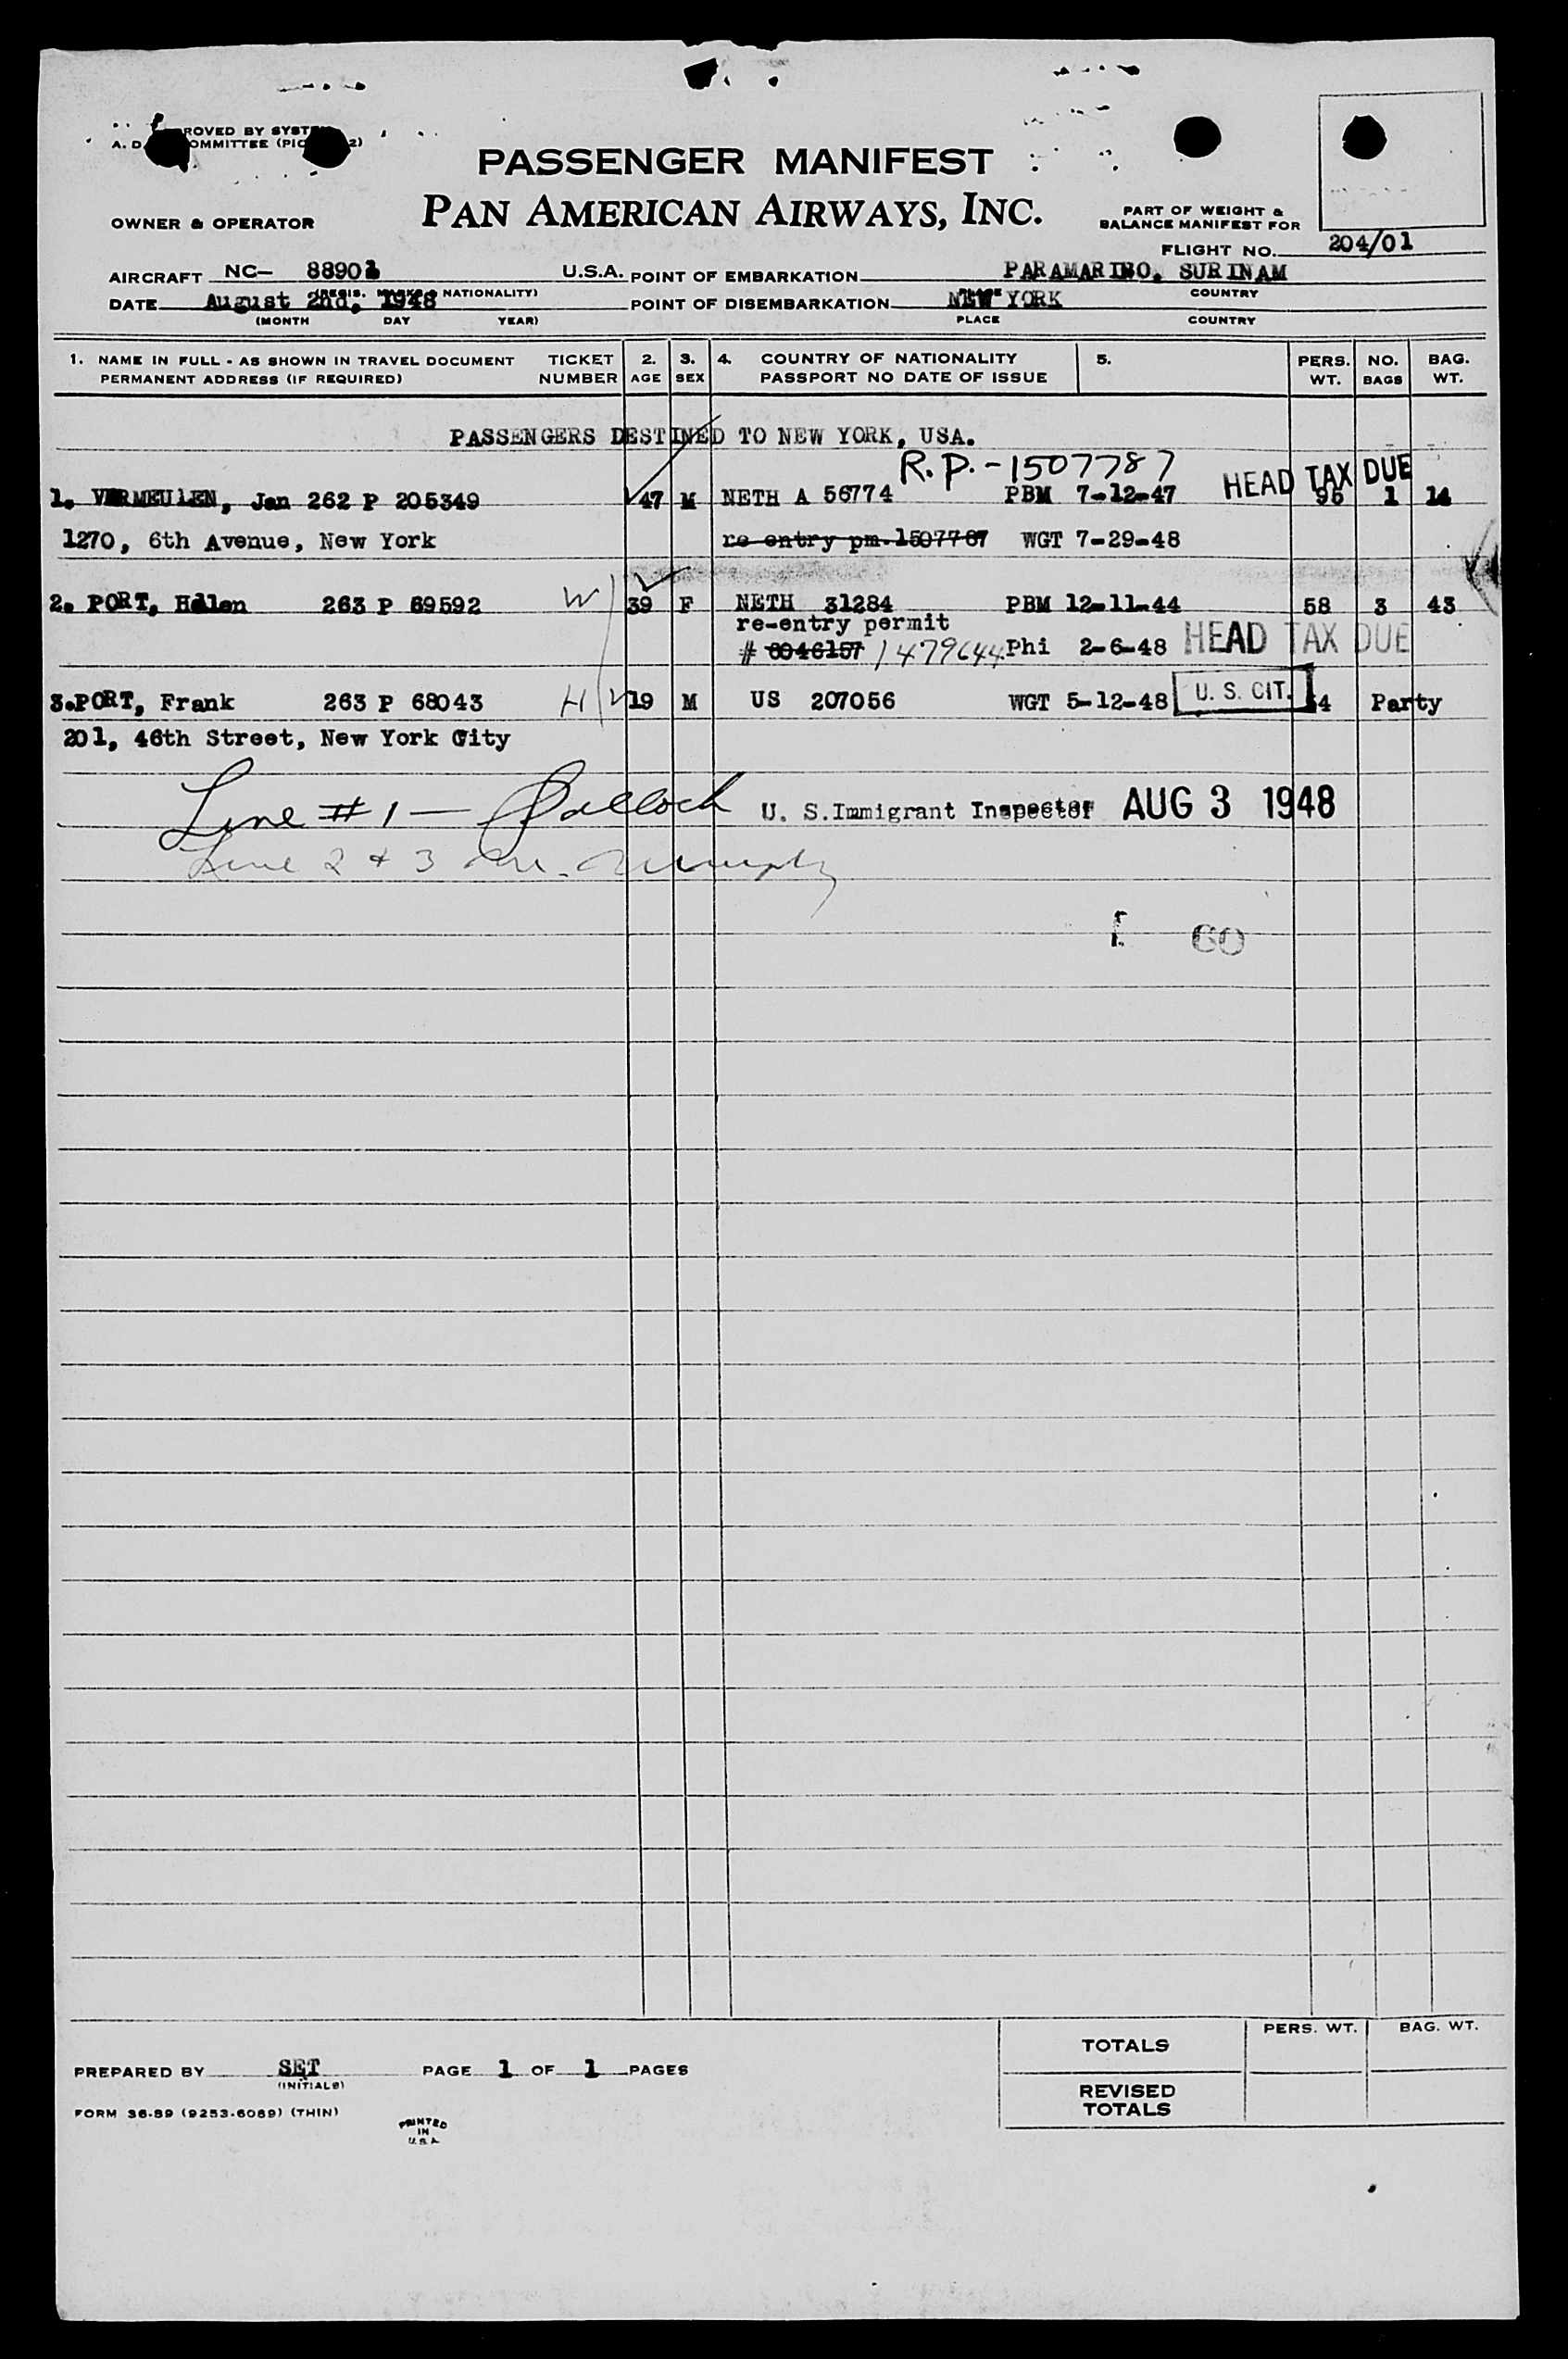 ROVED BY SYST
A. D OMMITTEE (PIC 2)
PASSENGER MANIFEST
PAN AMERICAN AIRWAYS, INC.
OWNER & OPERATOR
PART OF WEIGHT &
BALANCE MANIFEST FOR
FLIGHT NO. 204/01
AIRCRAFT NC- 88901 U.S.A. POINT OF EMBARKATION PARAMARIBO, SURINAM
(REGIS. MARKS & NATIONALITY) PLACE COUNTRY
DATE August 2nd, 1948 POINT OF DISEMBARKATION NEW YORK
(MONTH DAY YEAR) PLACE COUNTRY
1. NAME IN FULL - AS SHOWN IN TRAVEL DOCUMENT TICKET 2. 3. 4. COUNTRY OF NATIONALITY 5. PERS. NO. BAG.
PERMANENT ADDRESS (IF REQUIRED) NUMBER AGE SEX PASSPORT NO DATE OF ISSUE WT. BAGS WT.
PASSENGERS DESTINED TO NEW YORK, USA.
R.P.-1507787 HEAD TAX DUE
1. VERMEULEN, Jan 262 P 205349 47 M NETH A 56774 PBM 7-12-47 95 1 14
1270, 6th Avenue, New York re-entry pm. 1507787 WGT 7-29-48
2. PORT, Hellen 263 P 69592 W 39 F NETH 31284 PBM 12-11-44 58 3 43
re-entry permit
# 6046157 1479644 Phi 2-6-48 HEAD TAX DUE
3.PORT, Frank 263 P 68043 H 19 M US 207056 WGT 5-12-48 U. S. CIT. 4 Party
201, 46th Street, New York City
Line #1 — U. S.Immigrant Inspector AUG 3 1948
Line 2 + 3 Murphy
60
TOTALS PERS. WT. BAG. WT.
PREPARED BY SET PAGE 1 OF 1 PAGES
(INITIALS)
REVISED
TOTALS
FORM 36-89 (9253-6089) (THIN)
PRINTED
IN
U.S.A.